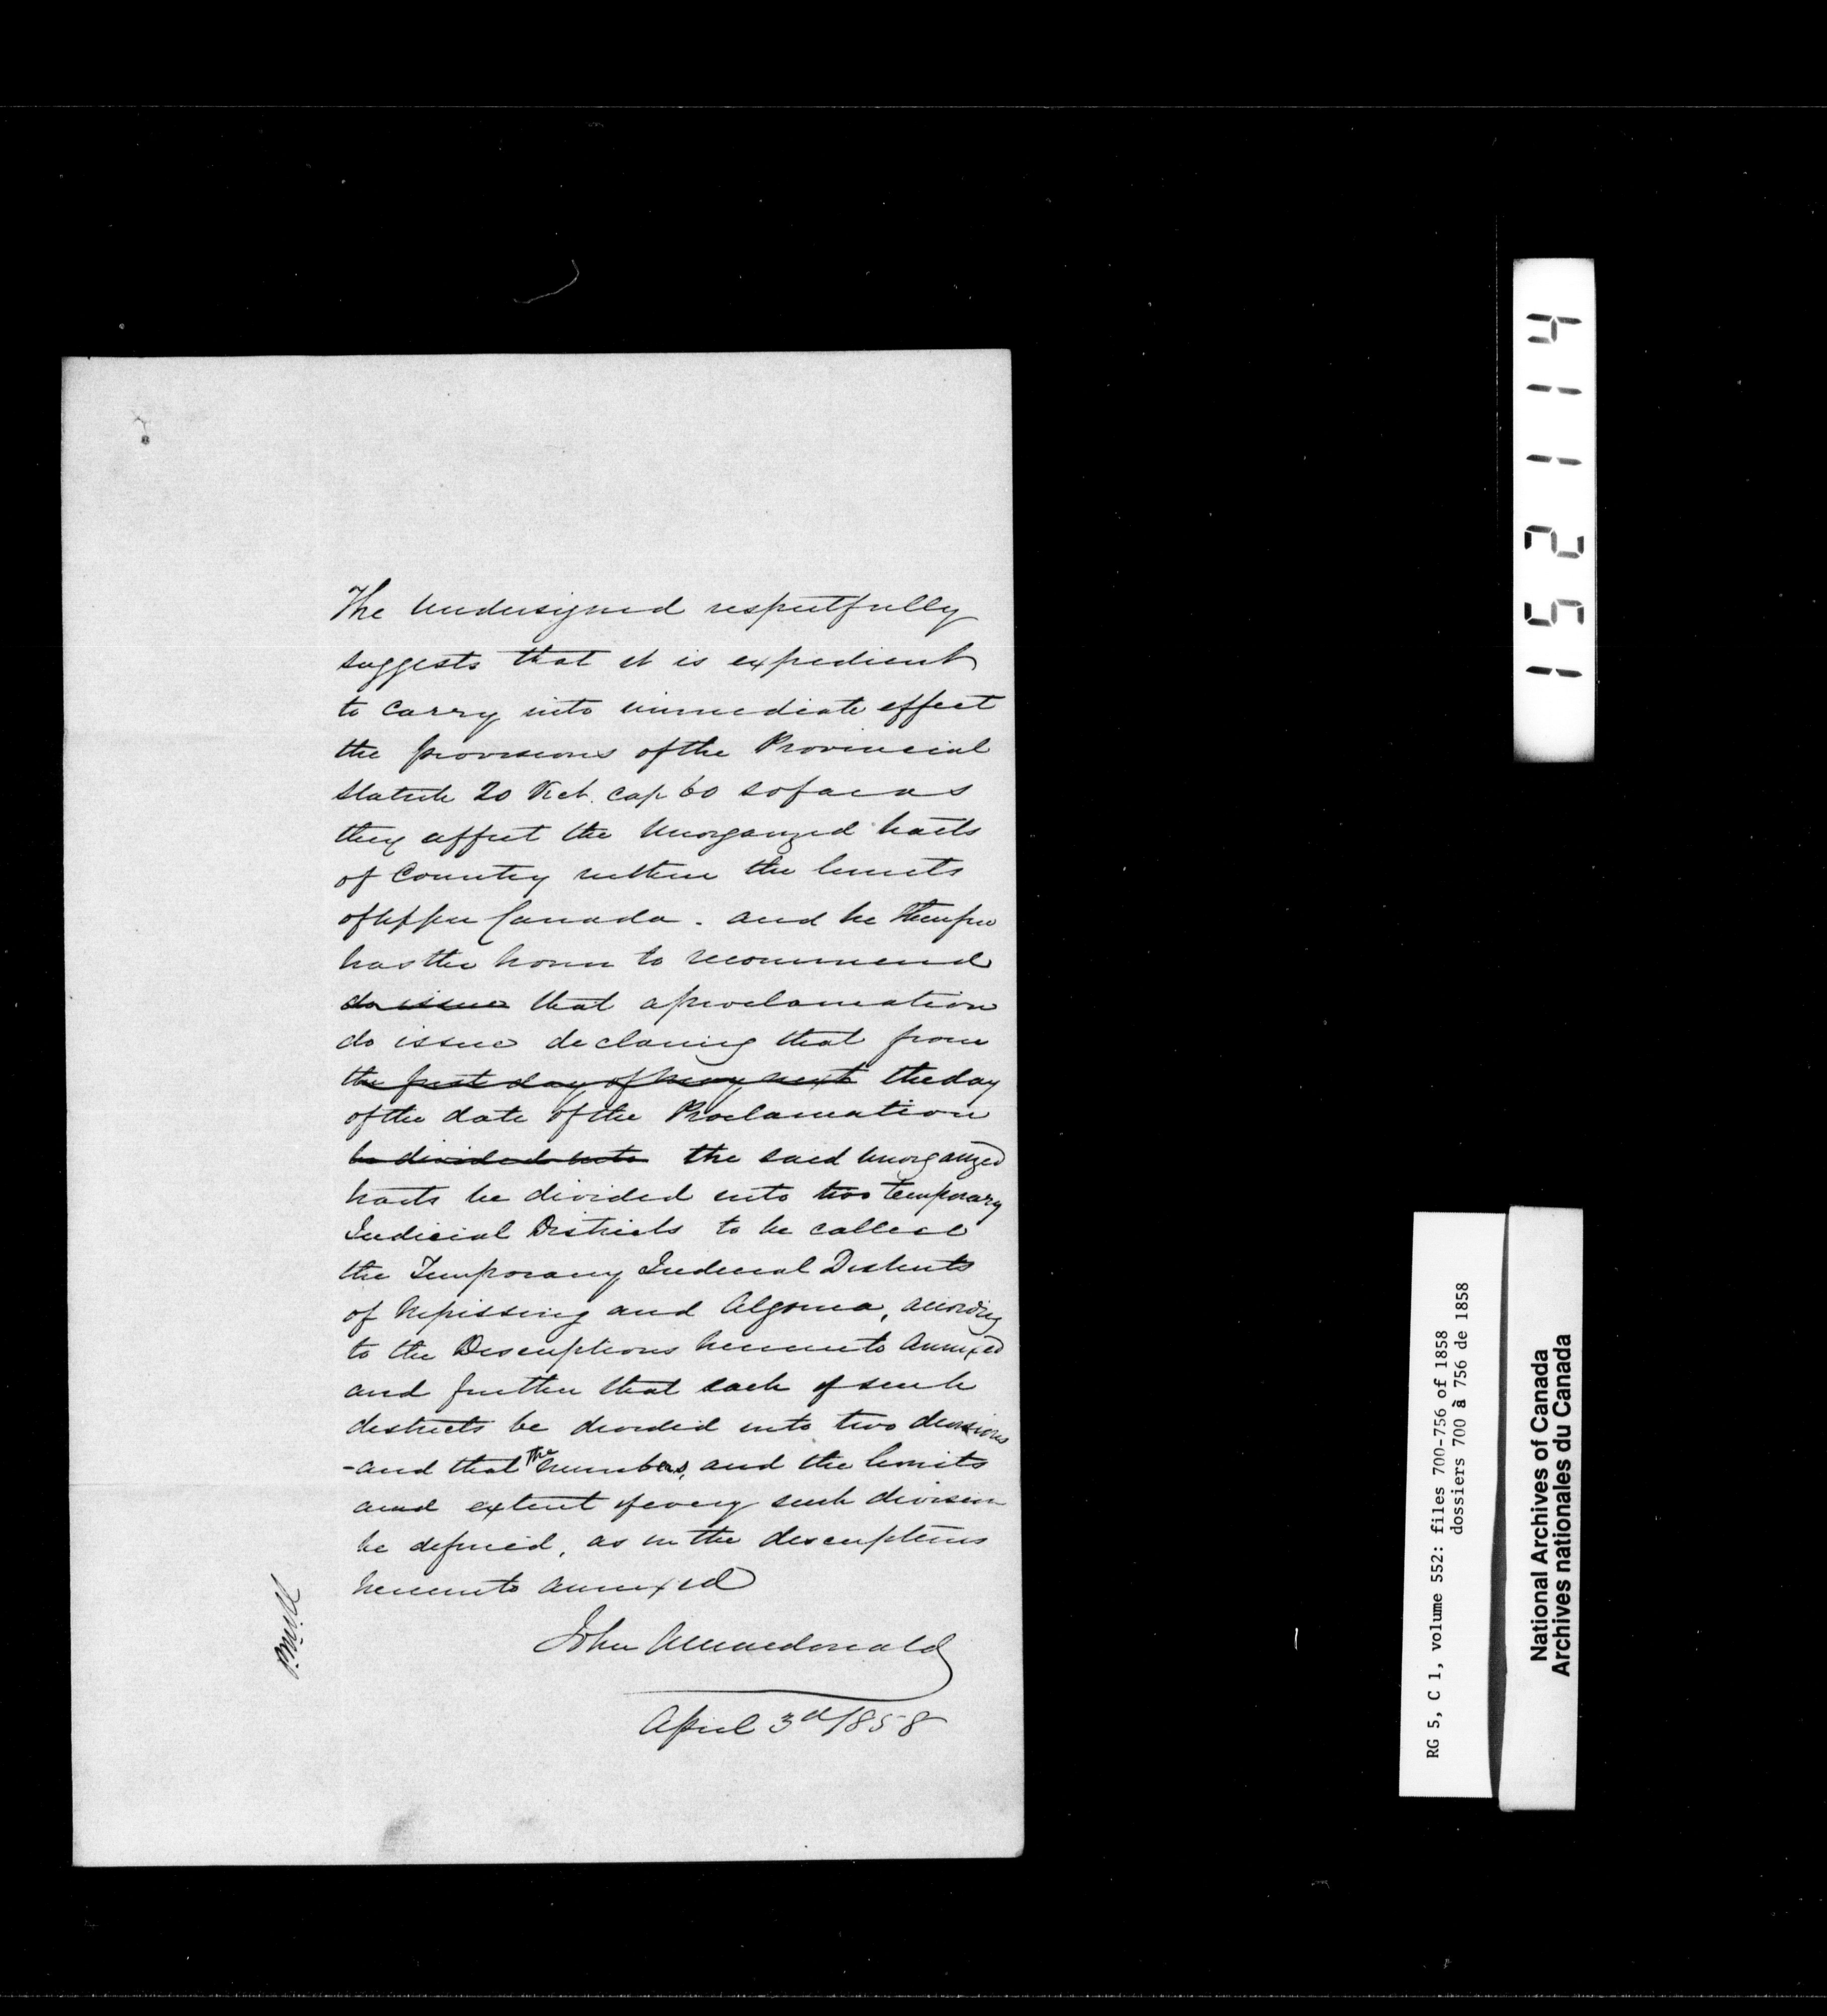 The Undersigned respectfully
suggests that it is expedient
to carry into immediate effect
the provisions of the Provincial
Statute 20 Vict. cap 60 so far as
they affect the Unorganized tracts
of Country within the limits
of Upper Canada. and he therefore
has the honor to recommend
do issue that a proclamation
do issue declaring that from
the first day of May next the day
of the date of the Proclamation
be divided into the said Unorganized
tracts be divided into two Temporary
Judicial Districts to be called
the Temporary Judicial Districts
of Nipissing and Algoma, according
to the Descriptions hereunto Annexed
and further that each of such
districts be divided into two divisions
- and that the numbers, and the limits
and extent of every such division
be defined, as in the descriptions
hereunto annexed
John A Macdonald
April 3d/1858
152114
RG 5, C 1, volume 552: files 700-756 of 1858
dossiers 700 à 756 de 1858
National Archives of Canada
Archives nationales du Canada